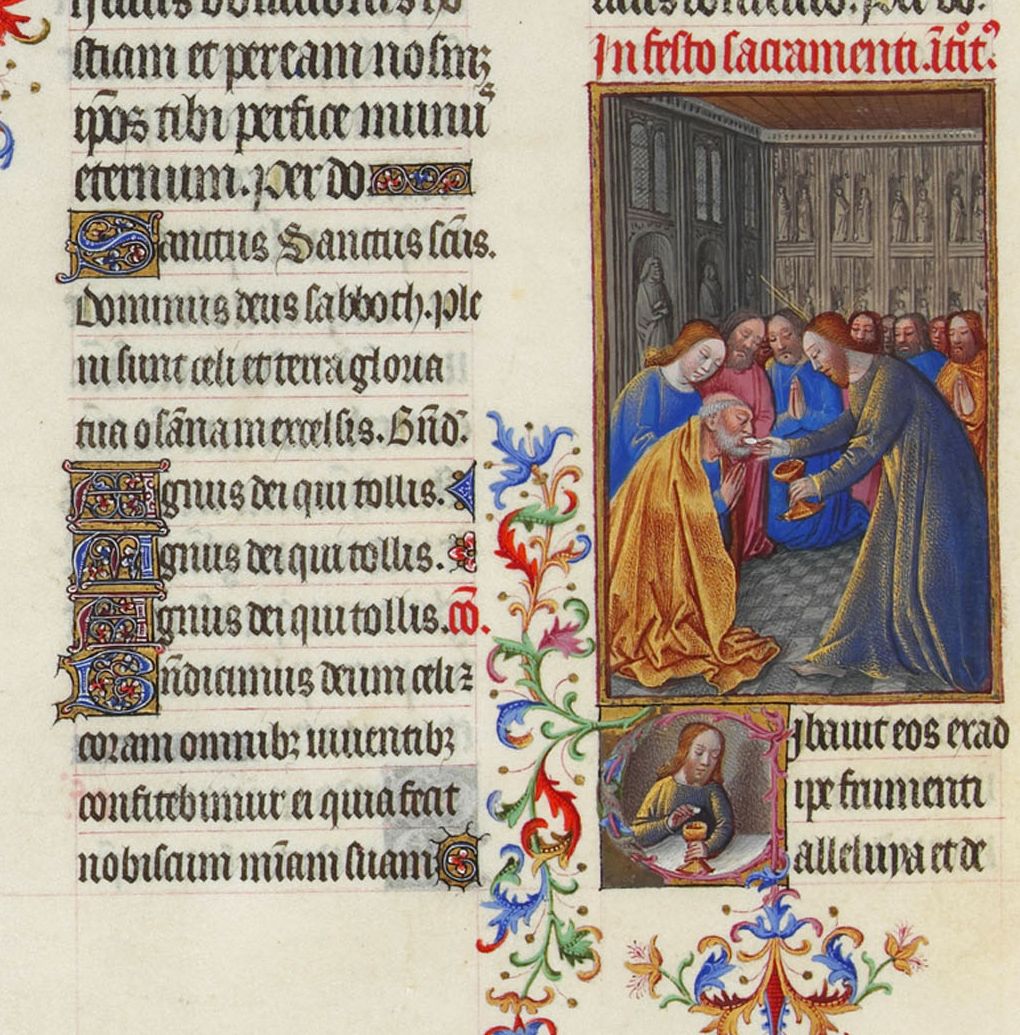 sticiam et per eam nos in
ip̄os tibi perfice munus
eternum. Per do
Sanctus Sanctus sc̄us.
Dominus deus sabboth. Ple
ni sunt celi et terra gloria
tua osāna in excelsis. Bn̄d̄.
Agnus dei qui tollis.
Agnus dei qui tollis.
Agnus dei qui tollis. cō.
Bn̄dicimus deum celi ⁊
coram omnibꝫ uiuentibꝫ
confitebimur ei quia fecit
nobiscum mīam suam
In festo sacramenti. ītᷣoitꝰ
Cibauit eos ex ad
ipe frumenti
alleluya et de